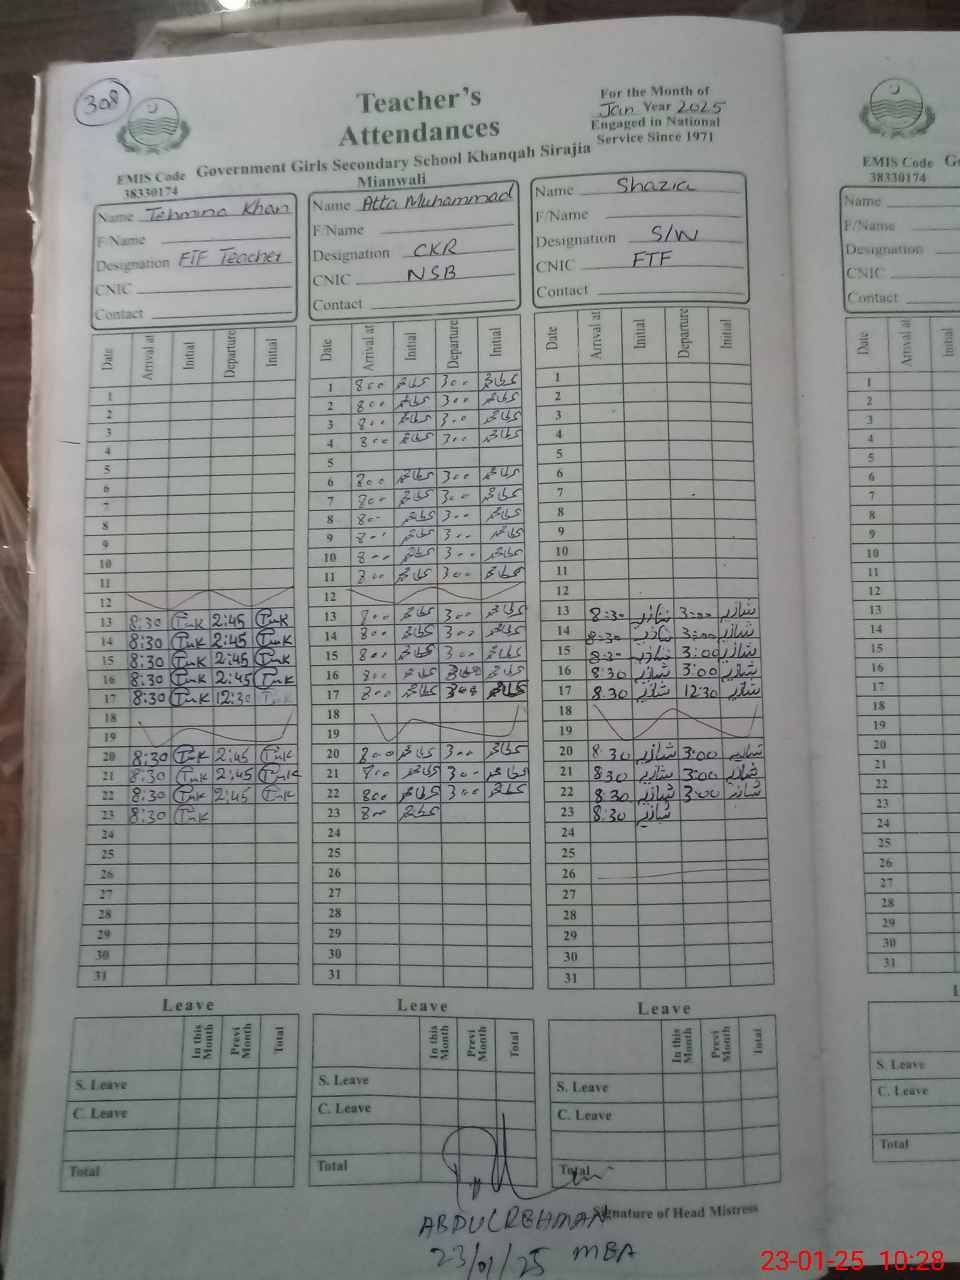 308
Teacher's
Attendances
For the Month of
Jan Year 2025
Engaged in National
Service Since 1971
EMIS Code
38330174
Government Girls Secondary School Khanqah Sirajia
Mianwali
Name Tehmina Khan
F/Name
Designation FTF Teacher
CNIC
Contact
Name Atta Muhammad
F/Name
Designation CKR
CNIC NSB
Contact
Name Shazia
F/Name
Designation S/W
CNIC FTF
Contact
Date Arrival at Initial Departure Initial
1
2
3
4
5
6
7
8
9
10
11
12
13 8:30 TmK 2:45 TmK
14 8:30 TmK 2:45 TmK
15 8:30 TmK 2:45 TmK
16 8:30 TmK 2:45 TmK
17 8:30 TmK 12:30 TmK
18
19
20 8:30 TmK 2:45 TmK
21 8:30 TmK 2:45 TmK
22 8:30 TmK 2:45 TmK
23 8:30 TmK
24
25
26
27
28
29
30
31
Date Arrival at Initial Departure Initial
1 800 300
2 800 300
3 800 300
4 800 300
5
6 800 300
7 800 300
8 800 300
9 800 300
10 800 300
11 800 300
12
13 800 300
14 800 300
15 800 300
16 800
17 800 300
18
19
20 800 300
21 800 300
22 800 300
23 800
24
25
26
27
28
29
30
31
Date Arrival at Initial Departure Initial
1
2
3
4
5
6
7
8
9
10
11
12
13 8:30 شازیہ 3:00 شازیہ
14 8:30 شازیہ 3:00 شازیہ
15 8:30 شازیہ 3:00 شازیہ
16 8:30 شازیہ 3:00 شازیہ
17 8:30 شازیہ 12:30 شازیہ
18
19
20 8:30 شازیہ 3:00 شازیہ
21 8:30 شازیہ 3:00 شازیہ
22 8:30 شازیہ 3:00 شازیہ
23 8:30 شازیہ
24
25
26
27
28
29
30
31
Leave
In this Month Previ Month Total
S. Leave
C. Leave
Total
Leave
In this Month Previ Month Total
S. Leave
C. Leave
Total
Leave
In this Month Previ Month Total
S. Leave
C. Leave
Total
ABDUL REHMAN
Signature of Head Mistress
23/01/25 MEA
EMIS Code
38330174
Name
F/Name
Designation
CNIC
Contact
Date Arrival at Initial
1
2
3
4
5
6
7
8
9
10
11
12
13
14
15
16
17
18
19
20
21
22
23
24
25
26
27
28
29
30
31
S. Leave
C. Leave
Total
23-01-25 10:28